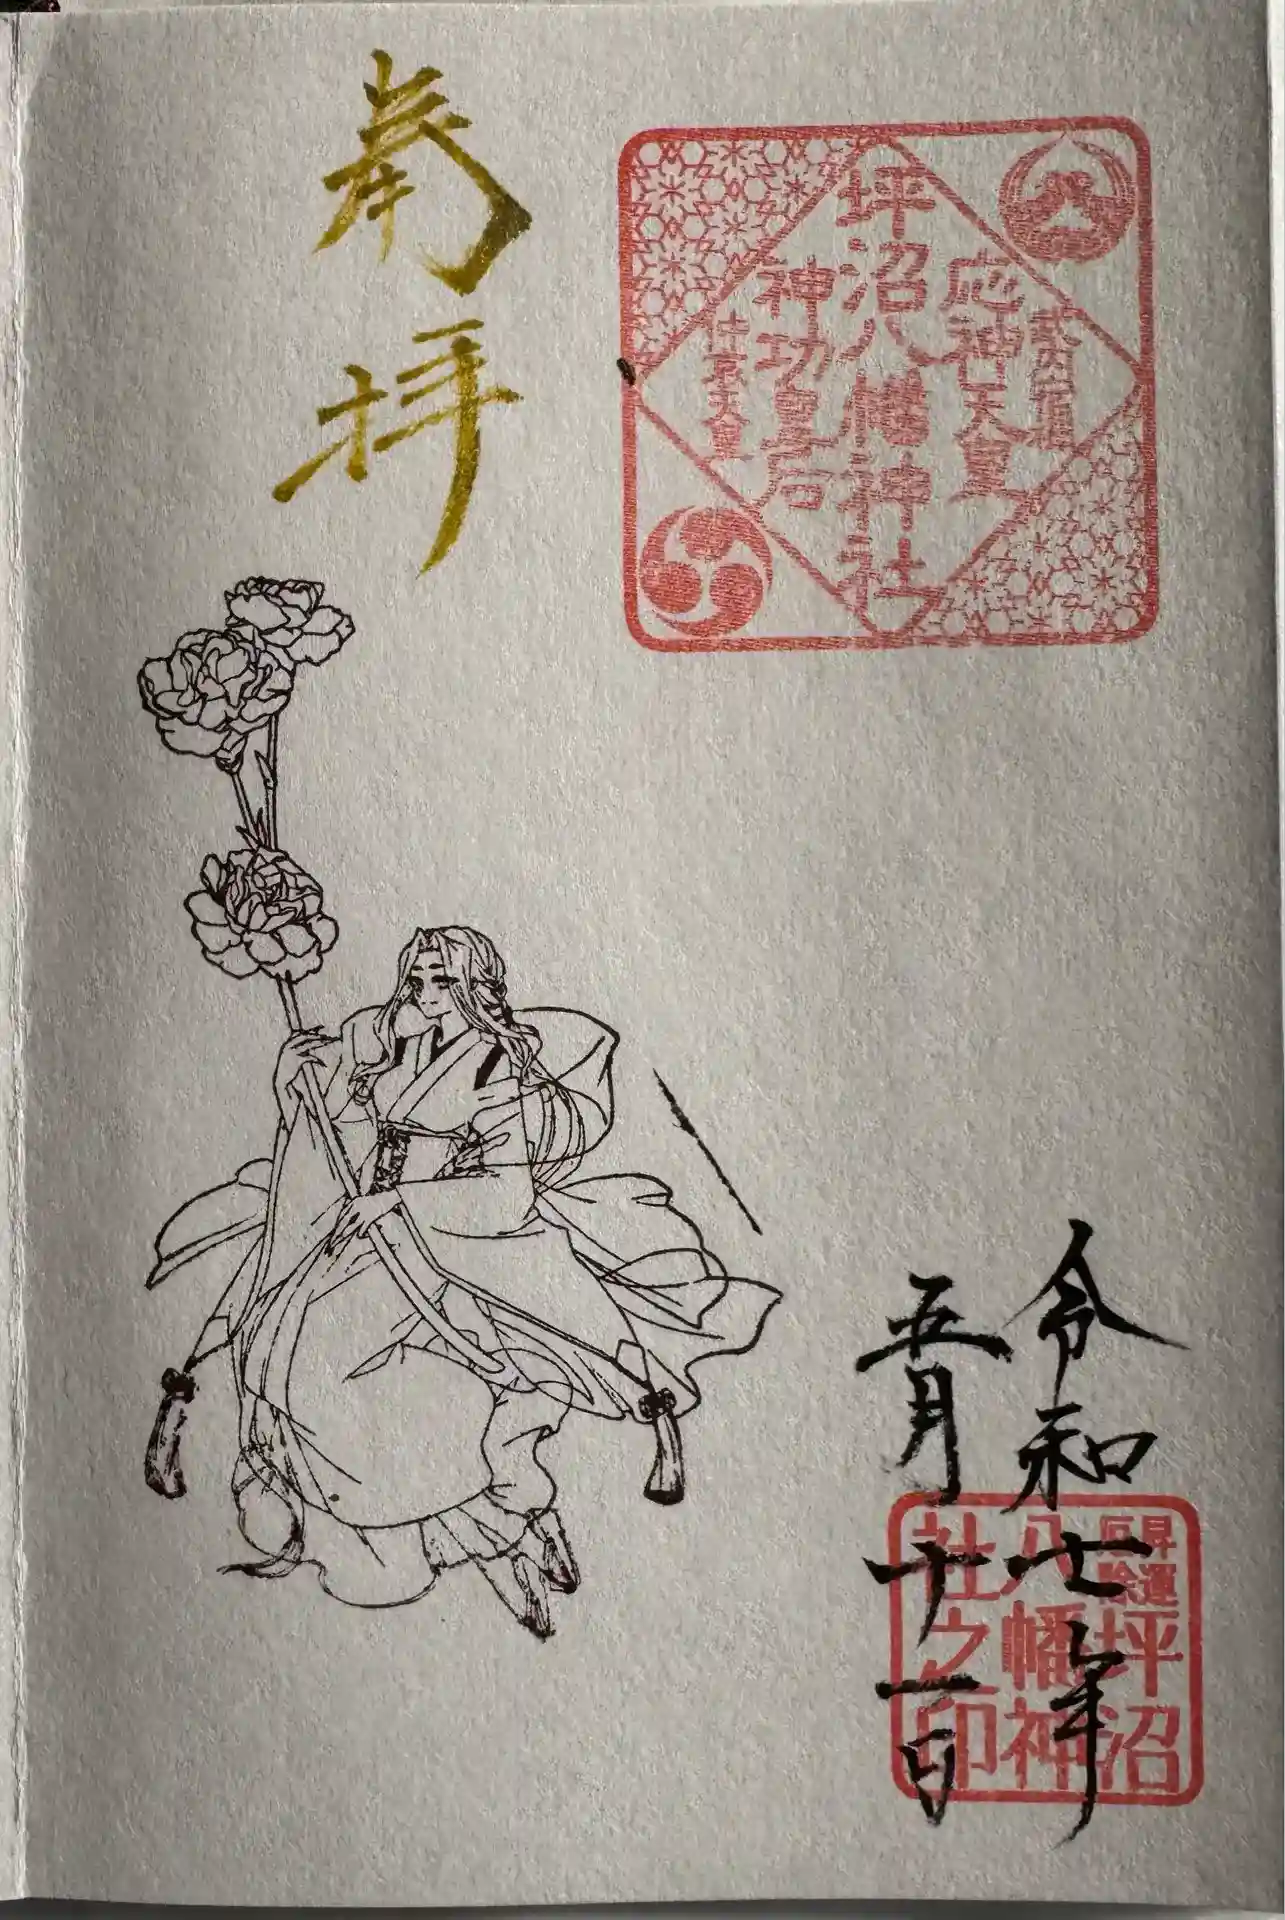 奉拝
武内宿祢
応神天皇
坪沼八幡神社
神功皇后
仲哀天皇
令和七年
五月十一日
昇運
厄除
坪沼
八幡神
社之印